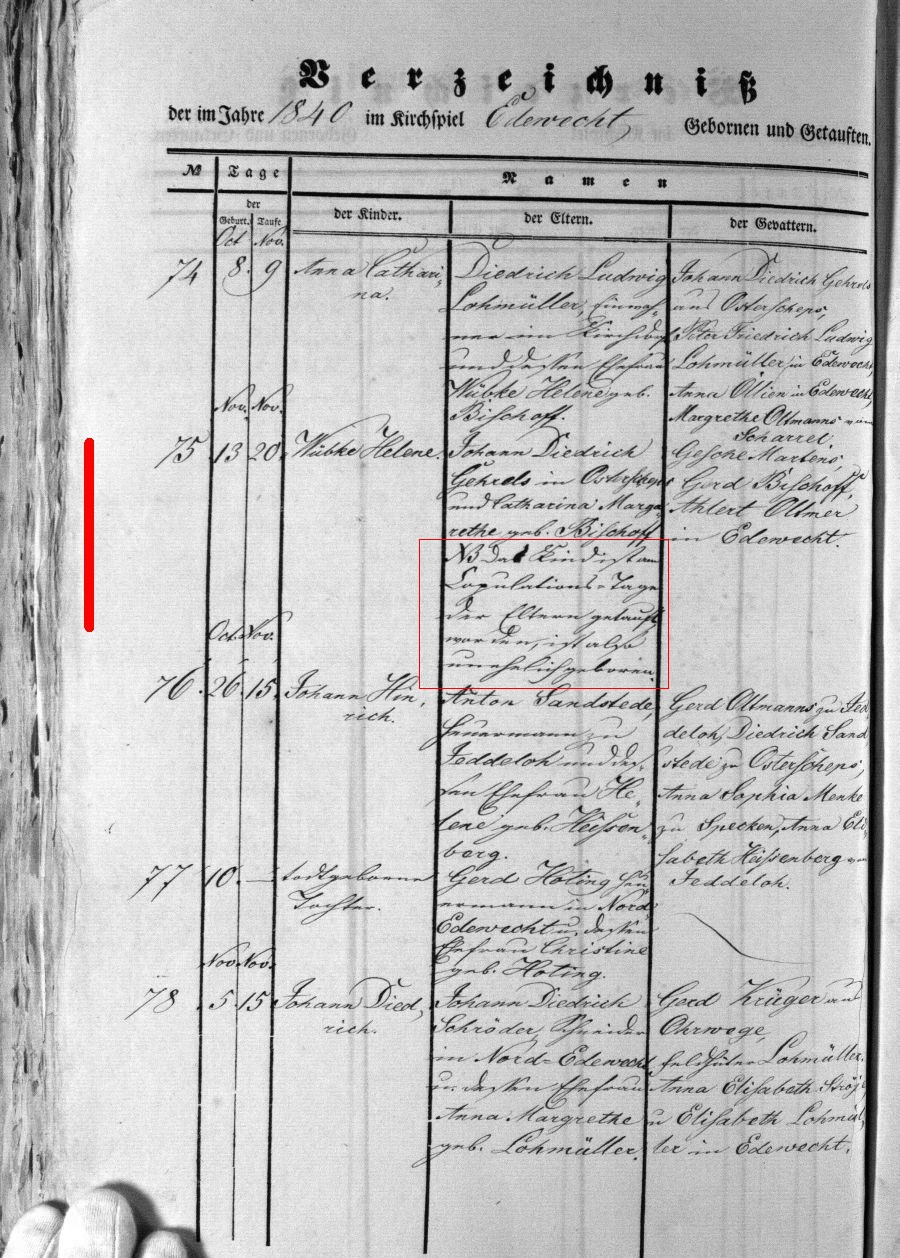 Verzeichniß
der im Jahre 1840 im Kirchspiel Edewecht Gebornen und Getauften.
№ Tage Namen
der
Geburt. Taufe der Kinder. der Eltern. der Gevattern.
Oct Nov.
74 8. 9 Anna Cathari-
na.
Diedrich Ludwig
Lohmüller, Einwoh-
ner im Kirchdorf
und dessen Ehefrau
Wübke Helene geb.
Bischoff.
Johann Diedrich Gehrels
aus Osterscheps,
Peter Friedrich Ludwig
Lohmüller, in Edewecht,
Anna Oltien in Edewecht,
Margrethe Oltmanns vom
Scharrel
Nov. Nov.
75 13 20. Wübke Helene.
Johann Diedrich
Gehrels in Osterscheps
und Catharina Marga-
rethe geb. Bischoff
NB Das Kind ist am
Copulations-Tage
der Eltern getauft
worden, ist also
unehelich geboren.
Gesche Martens,
Gerd Bischoff,
Ahlert Oltmer
in Edewecht.
Oct. Nov.
76. 26. 15. Johann Hin-
rich.
Anton Sandstede,
Heuermann zu
Jeddeloh und des-
sen Ehefrau He-
lene geb. Heissen-
berg.
Gerd Oltmanns zu Jed-
deloh, Diedrich Sand
stede zu Osterscheps,
Anna Sophia Menke
zu Specken, Anna Eli-
sabeth Heissenberg von
Jeddeloh.
77 10. — todtgeborne
Tochter.
Gerd Hoting Heu
ermann in Nord
Edewecht u. dessen
Ehefrau Christine
geb. Hoting.
Nov. Nov.
78 5 15 Johann Died-
rich.
Johann Diedrich
Schröder, Schneider
in Nord-Edewecht
u. dessen Ehefrau
Anna Margrethe
geb. Lohmüller.
Gerd Krüger aus
Ohrwege,
Lohmüller.
Anna Elisabeth
u Elisabeth Lohmül-
ler in Edewecht.